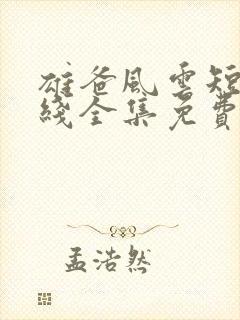 雄爸風雲短
綫全集免費
孟浩然